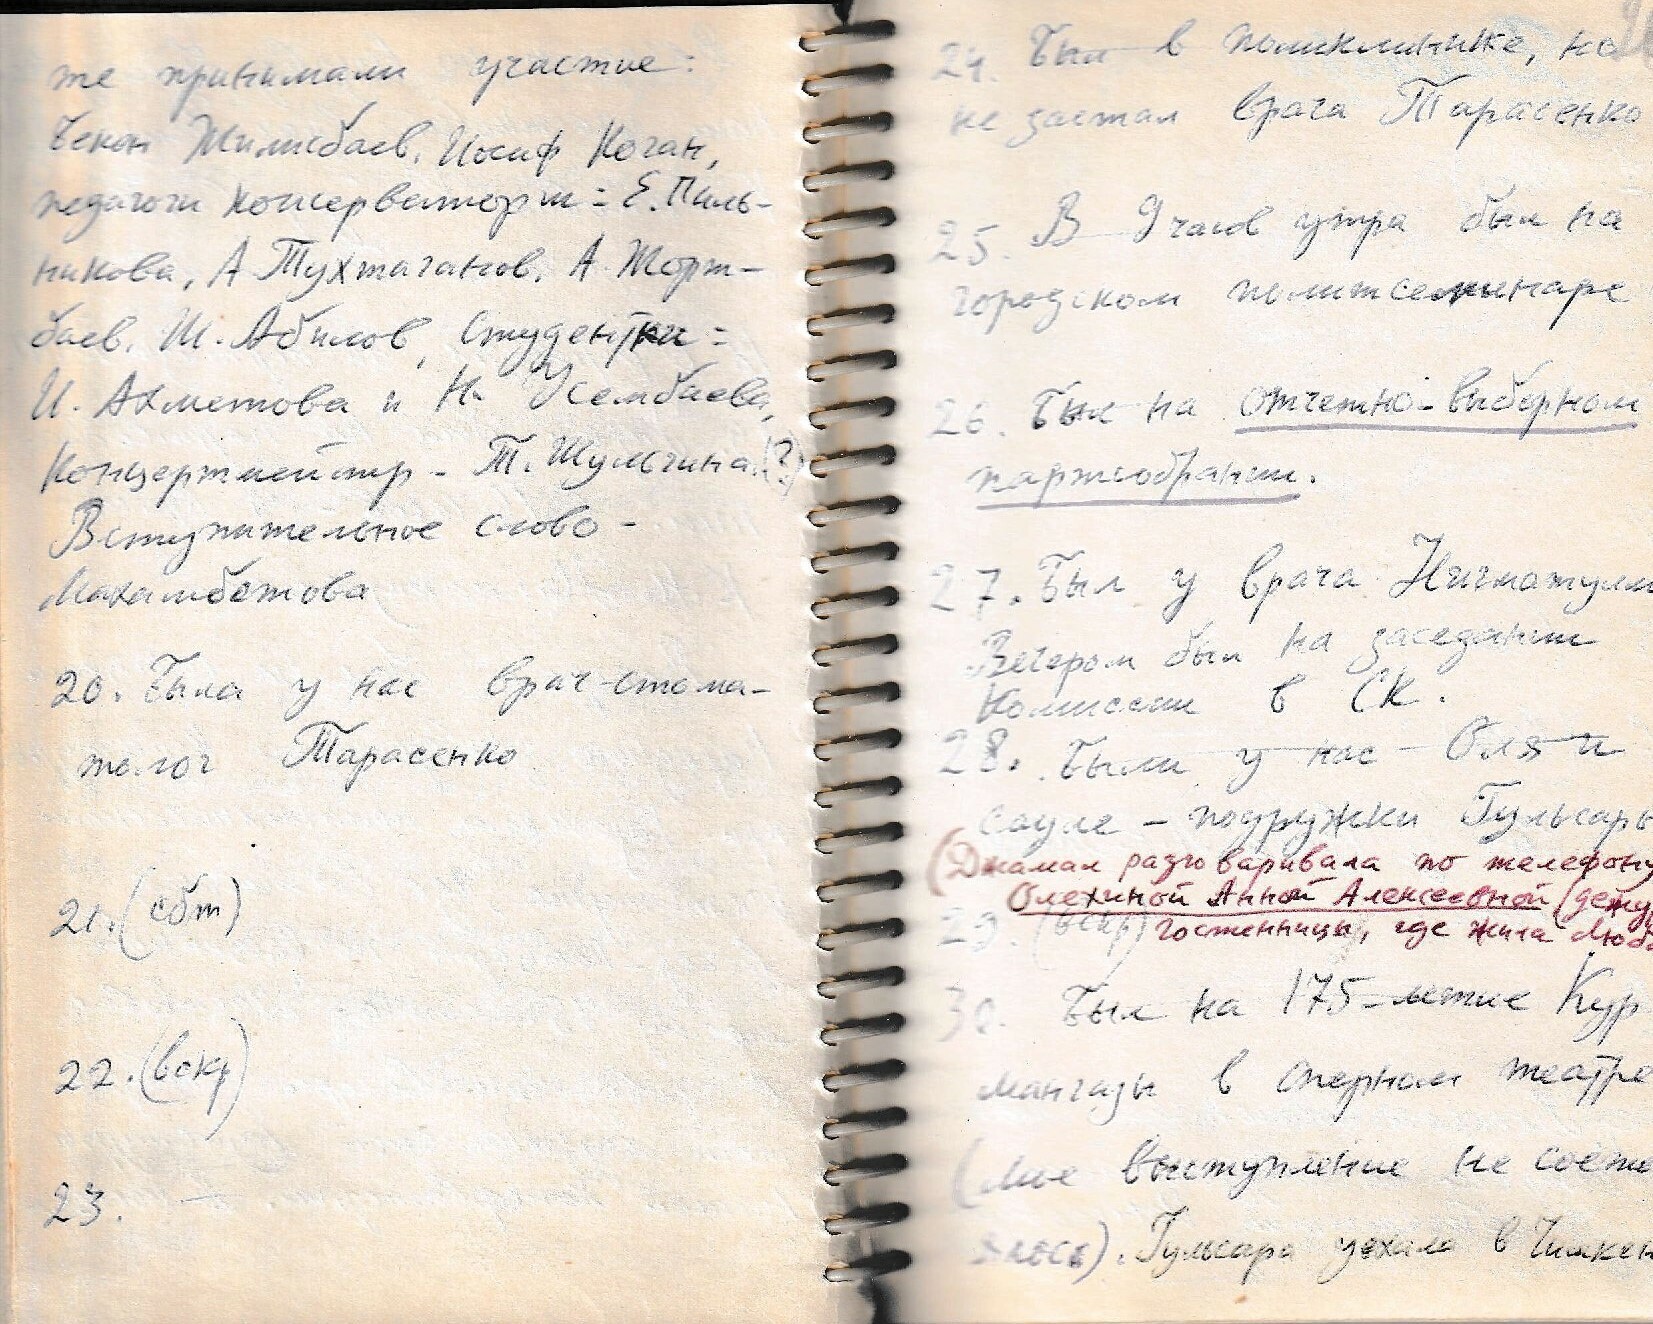 же принимали участие:
Бекен Жилисбаев, Иосиф Коган,
педагоги консерватории: Е. Пиль-
никова, А. Тухтаганов, А. Жорт-
баев, Ш. Абилов, студентки:
И. Ахметова и Н. Усембаева,
Концертмейстр - Т. Шульгина (?)
Вступительное слово -
Махамбетова
20. Была у нас врач-стома-
толог Тарасенко
21. (сбт)
22. (вскр)
23. —
24. Был в поликлинике, но
не застал врача Тарасенко
25. В 9 часов утра был на
городском политсеминаре
26. Был на отчетно-выборном
партсобрании.
27. Был у врача Нигматулл
Вечером был на заседании
Комиссии в СК.
28. Были у нас - Оля и
Сауле - подружки Гульсары
(Джамал разговаривала по телефону
Олехиной Анной Алексеевной (дежу
29. (вскр) гостенницы, где жила Люб
30. Был на 175-летие Кур
мангазы в оперном театре
(Мое выступление не состо
ялось). Гульсара уехала в Чимкен